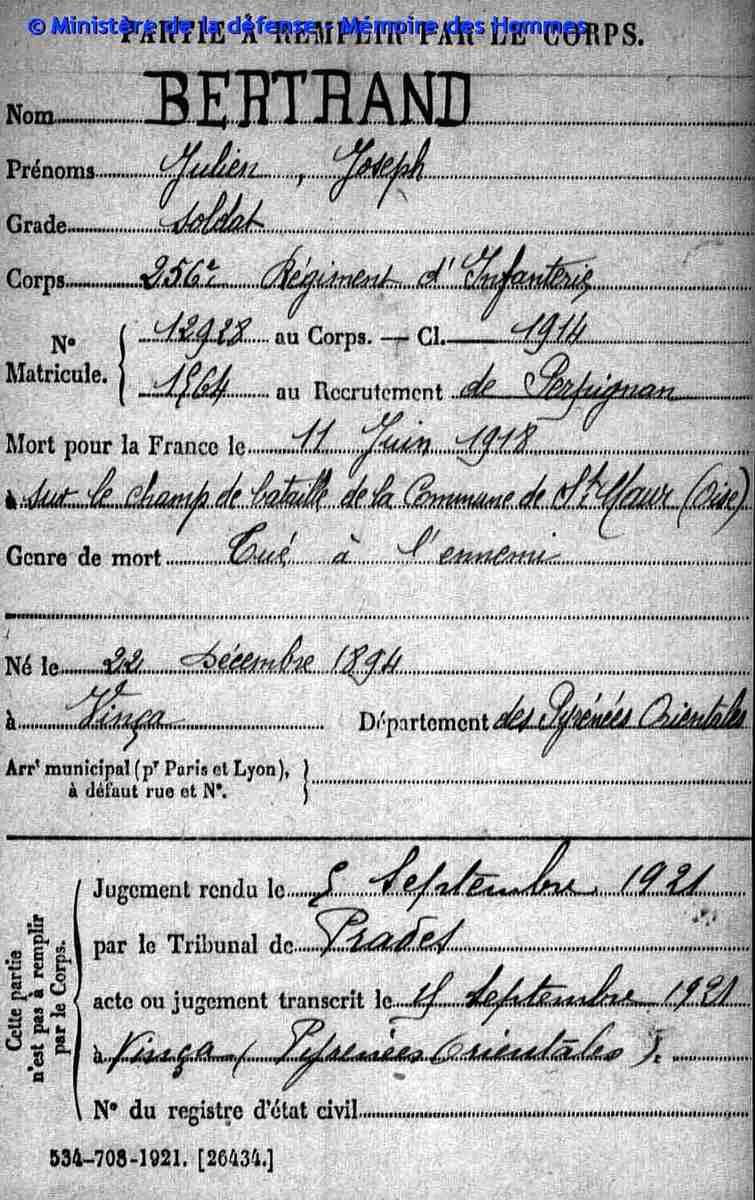 © Ministère de la défense - Mémoire des Hommes
PARTIE A REMPLIR PAR LE CORPS.
Nom BERTRAND
Prénoms Julien, Joseph
Grade soldat
Corps 256e Régiment d'Infanterie
N° Matricule. 12928 au Corps. — Cl. 1914
1564 au Recrutement de Perpignan
Mort pour la France le 11 Juin 1918
à sur le champ de bataille de la Commune de St Maur (Oise)
Genre de mort Tué à l'ennemi
Né le 22 Décembre 1894
à Vinça Département des Pyrénées Orientales
Arrt municipal (pr Paris et Lyon),
à défaut rue et N°.
Cette partie n'est pas à remplir par le Corps.
Jugement rendu le 5 Septembre 1921
par le Tribunal de Prades
acte ou jugement transcrit le 15 Septembre 1921
à Vinça (Pyrénées Orientales).
N° du registre d'état civil
534-708-1921. [26434.]